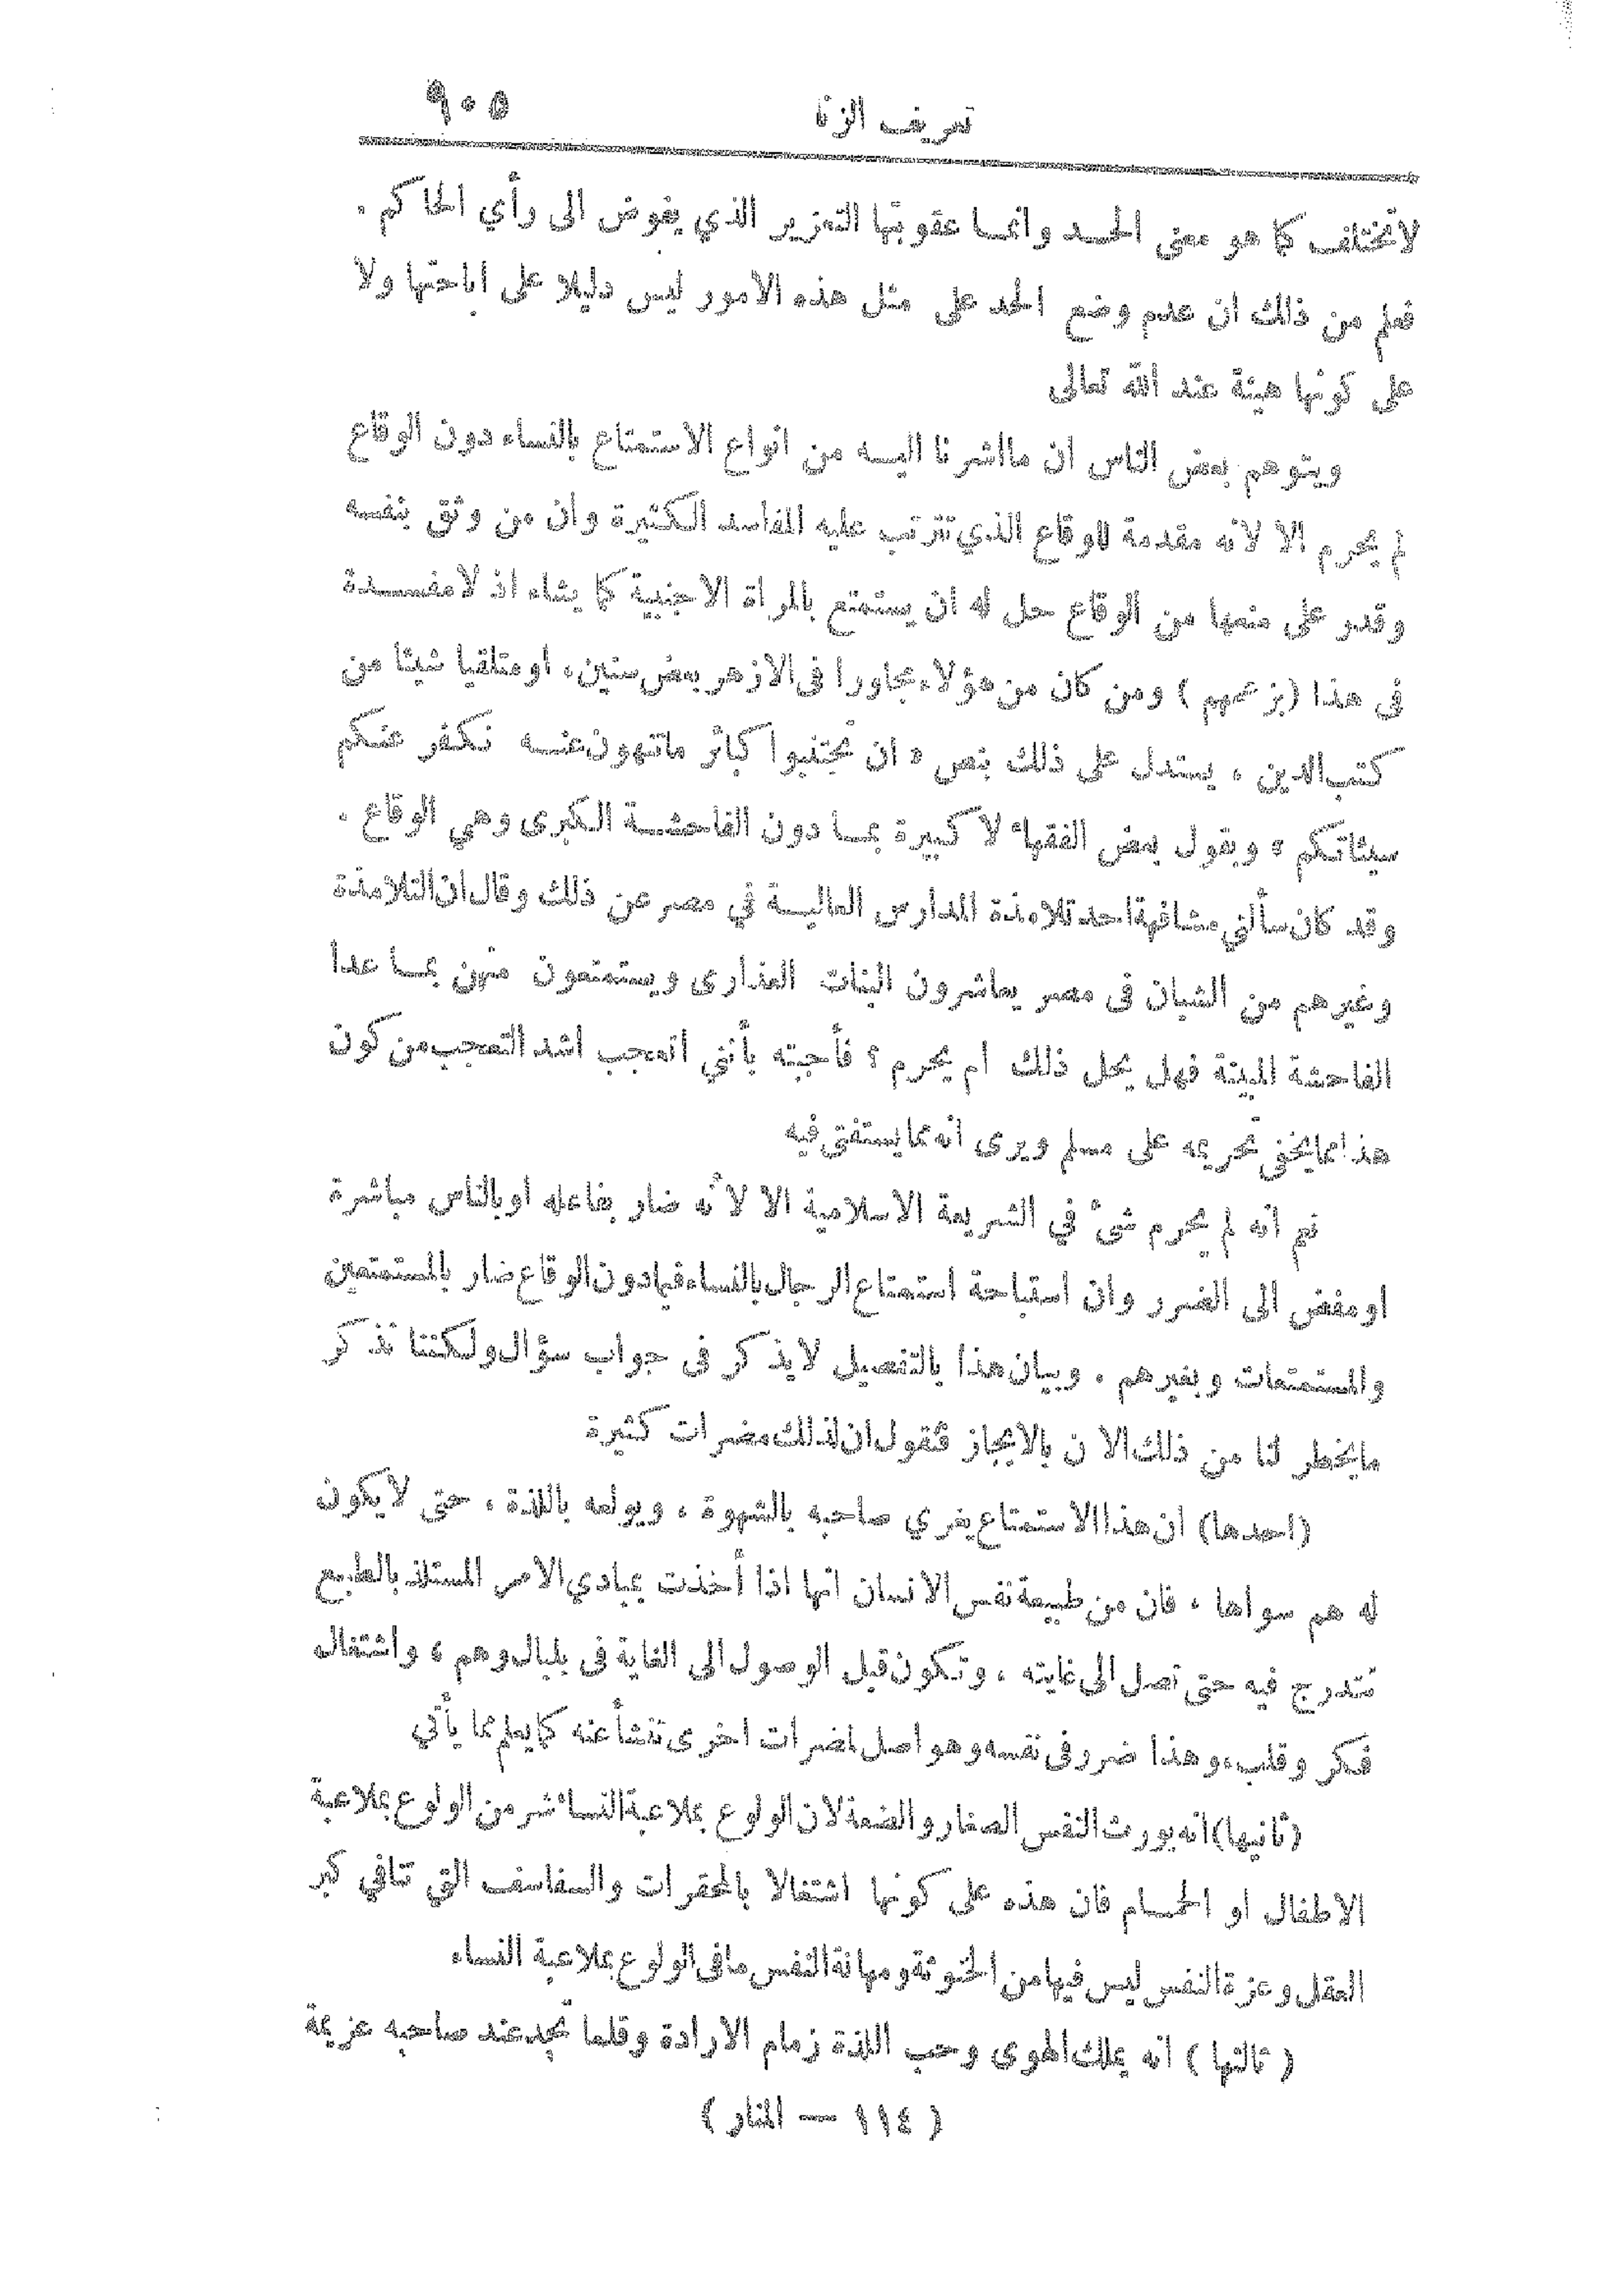 تعريف الزنا ٩٠٥
لا تختلف كما هو معنى الحد وانما عقوبتها التعزير الذي يفوض الى رأي الحاكم .
فعلم من ذلك ان عدم وضع الحد على مثل هذه الامور ليس دليلا على اباحتها ولا
على كونها هينة عند الله تعالى
ويتوهم بعض الناس ان ما اشرنا اليه من انواع الاستمتاع بالنساء دون الوقاع
لم يحرم الا لانه مقدمة للوقاع الذي تترتب عليه المفاسد الكثيرة وان من وثق بنفسه
وقدر على منعها من الوقاع حل له ان يستمتع بالمرأة الاجنبية كما يشاء اذ لا مفسدة
فى هذا (بزعمهم) ومن كان من هؤلاء مجاورا فى الازهر بعض سنين، او متلقيا شيئا من
كتب الدين ، يستدل على ذلك بنص « ان تجتنبوا كبائر ما تنهون عنه نكفر عنكم
سيئاتكم » وبقول بعض الفقهاء لا كبيرة بما دون الفاحشة الكبرى وهي الوقاع .
وقد كان سألني مشافهة احد تلامذة المدارس العالية في مصر عن ذلك وقال ان التلامذة
وغيرهم من الشبان فى مصر يعاشرون البنات العذارى ويستمتعون منهن بما عدا
الفاحشة المبينة فهل يحل ذلك ام يحرم ؟ فأجبته بأنني اتعجب اشد التعجب من كون
هذا مما يخفى تحريمه على مسلم ويرى انه مما يستفتى فيه
نعم انه لم يحرم شيء في الشريعة الاسلامية الا لأنه ضار بفاعله او بالناس مباشرة
او مفض الى الضرر وان استباحة استمتاع الرجال بالنساء فيما دون الوقاع ضار بالمستمتعين
والمستمتعات وبغيرهم . وبيان هذا بالتفصيل لا يذكر فى جواب سؤال ولكننا نذكر
ما يخطر لنا من ذلك الآن بالايجاز فنقول ان لذلك مضرات كثيرة
(احدها) ان هذا الاستمتاع يغري صاحبه بالشهوة ، ويولعه باللذة ، حتى لا يكون
له هم سواها ، فان من طبيعة نفس الانسان انها اذا أخذت بمبادي الامر المستلذ بالطبع
تتدرج فيه حتى تصل الى غايته ، وتكون قبل الوصول الى الغاية فى بلبال وهم ، واشتغال
فكر وقلب، وهذا ضرر فى نفسه وهو اصل لمضرات اخرى تنشأ عنه كما يعلم مما يأتي
(ثانيها) انه يورث النفس الصغار والضعة لان الولوع بملاعبة النساء شر من الولوع بملاعبة
الاطفال او الحمام فان هذه على كونها اشتغالا بالمحقرات والسفاسف التي تنافي كبر
العقل وعزة النفس ليس فيها من الخنوثة ومهانة النفس ما فى الولوع بملاعبة النساء
( ثالثها ) انه يملك الهوى وحب اللذة زمام الارادة وقلما تجد عند صاحبه عزيمة
( ١١٤ — المنار )